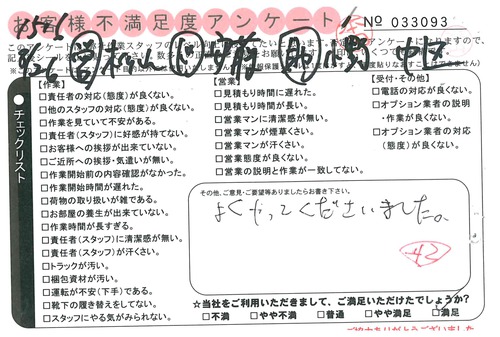 お客様不満足度アンケート
No 033093
チェックリスト
【作業】
□責任者の対応(態度)が良くない。
□他のスタッフの対応(態度)が良くない。
□作業を見ていて不安がある。
□責任者(スタッフ)に好感が持てない。
□お客様への挨拶が出来ていない。
□ご近所への挨拶・気遣いが無い。
□作業開始前の内容確認がなかった。
□作業開始時間が遅れた。
□荷物の取り扱いが雑である。
□お部屋の養生が出来ていない。
□作業時間が長すぎる。
□責任者(スタッフ)に清潔感が無い。
□責任者(スタッフ)が汗くさい。
□トラックが汚い。
□梱包資材が汚い。
□運転が不安(下手)である。
□靴下の履き替えをしてない。
□スタッフにやる気がみられない。
【営業】
□見積もり時間に遅れた。
□見積もり時間が長い。
□営業マンに清潔感が無い。
□営業マンが煙草くさい。
□営業マンが汗くさい。
□営業態度が良くない。
□営業の説明と作業が一致してない。
【受付・その他】
□電話の対応が良くない。
□オプション業者の説明
・作業が良くない。
□オプション業者の対応
(態度)が良くない。
その他、ご意見・ご要望等ありましたらお書き下さい。
よくやってくださいました。
42
☆当社をご利用いただきまして、ご満足いただけたでしょうか?
□不満 □やや不満 □普通 □やや満足 □満足
ご協力ありがとうございました